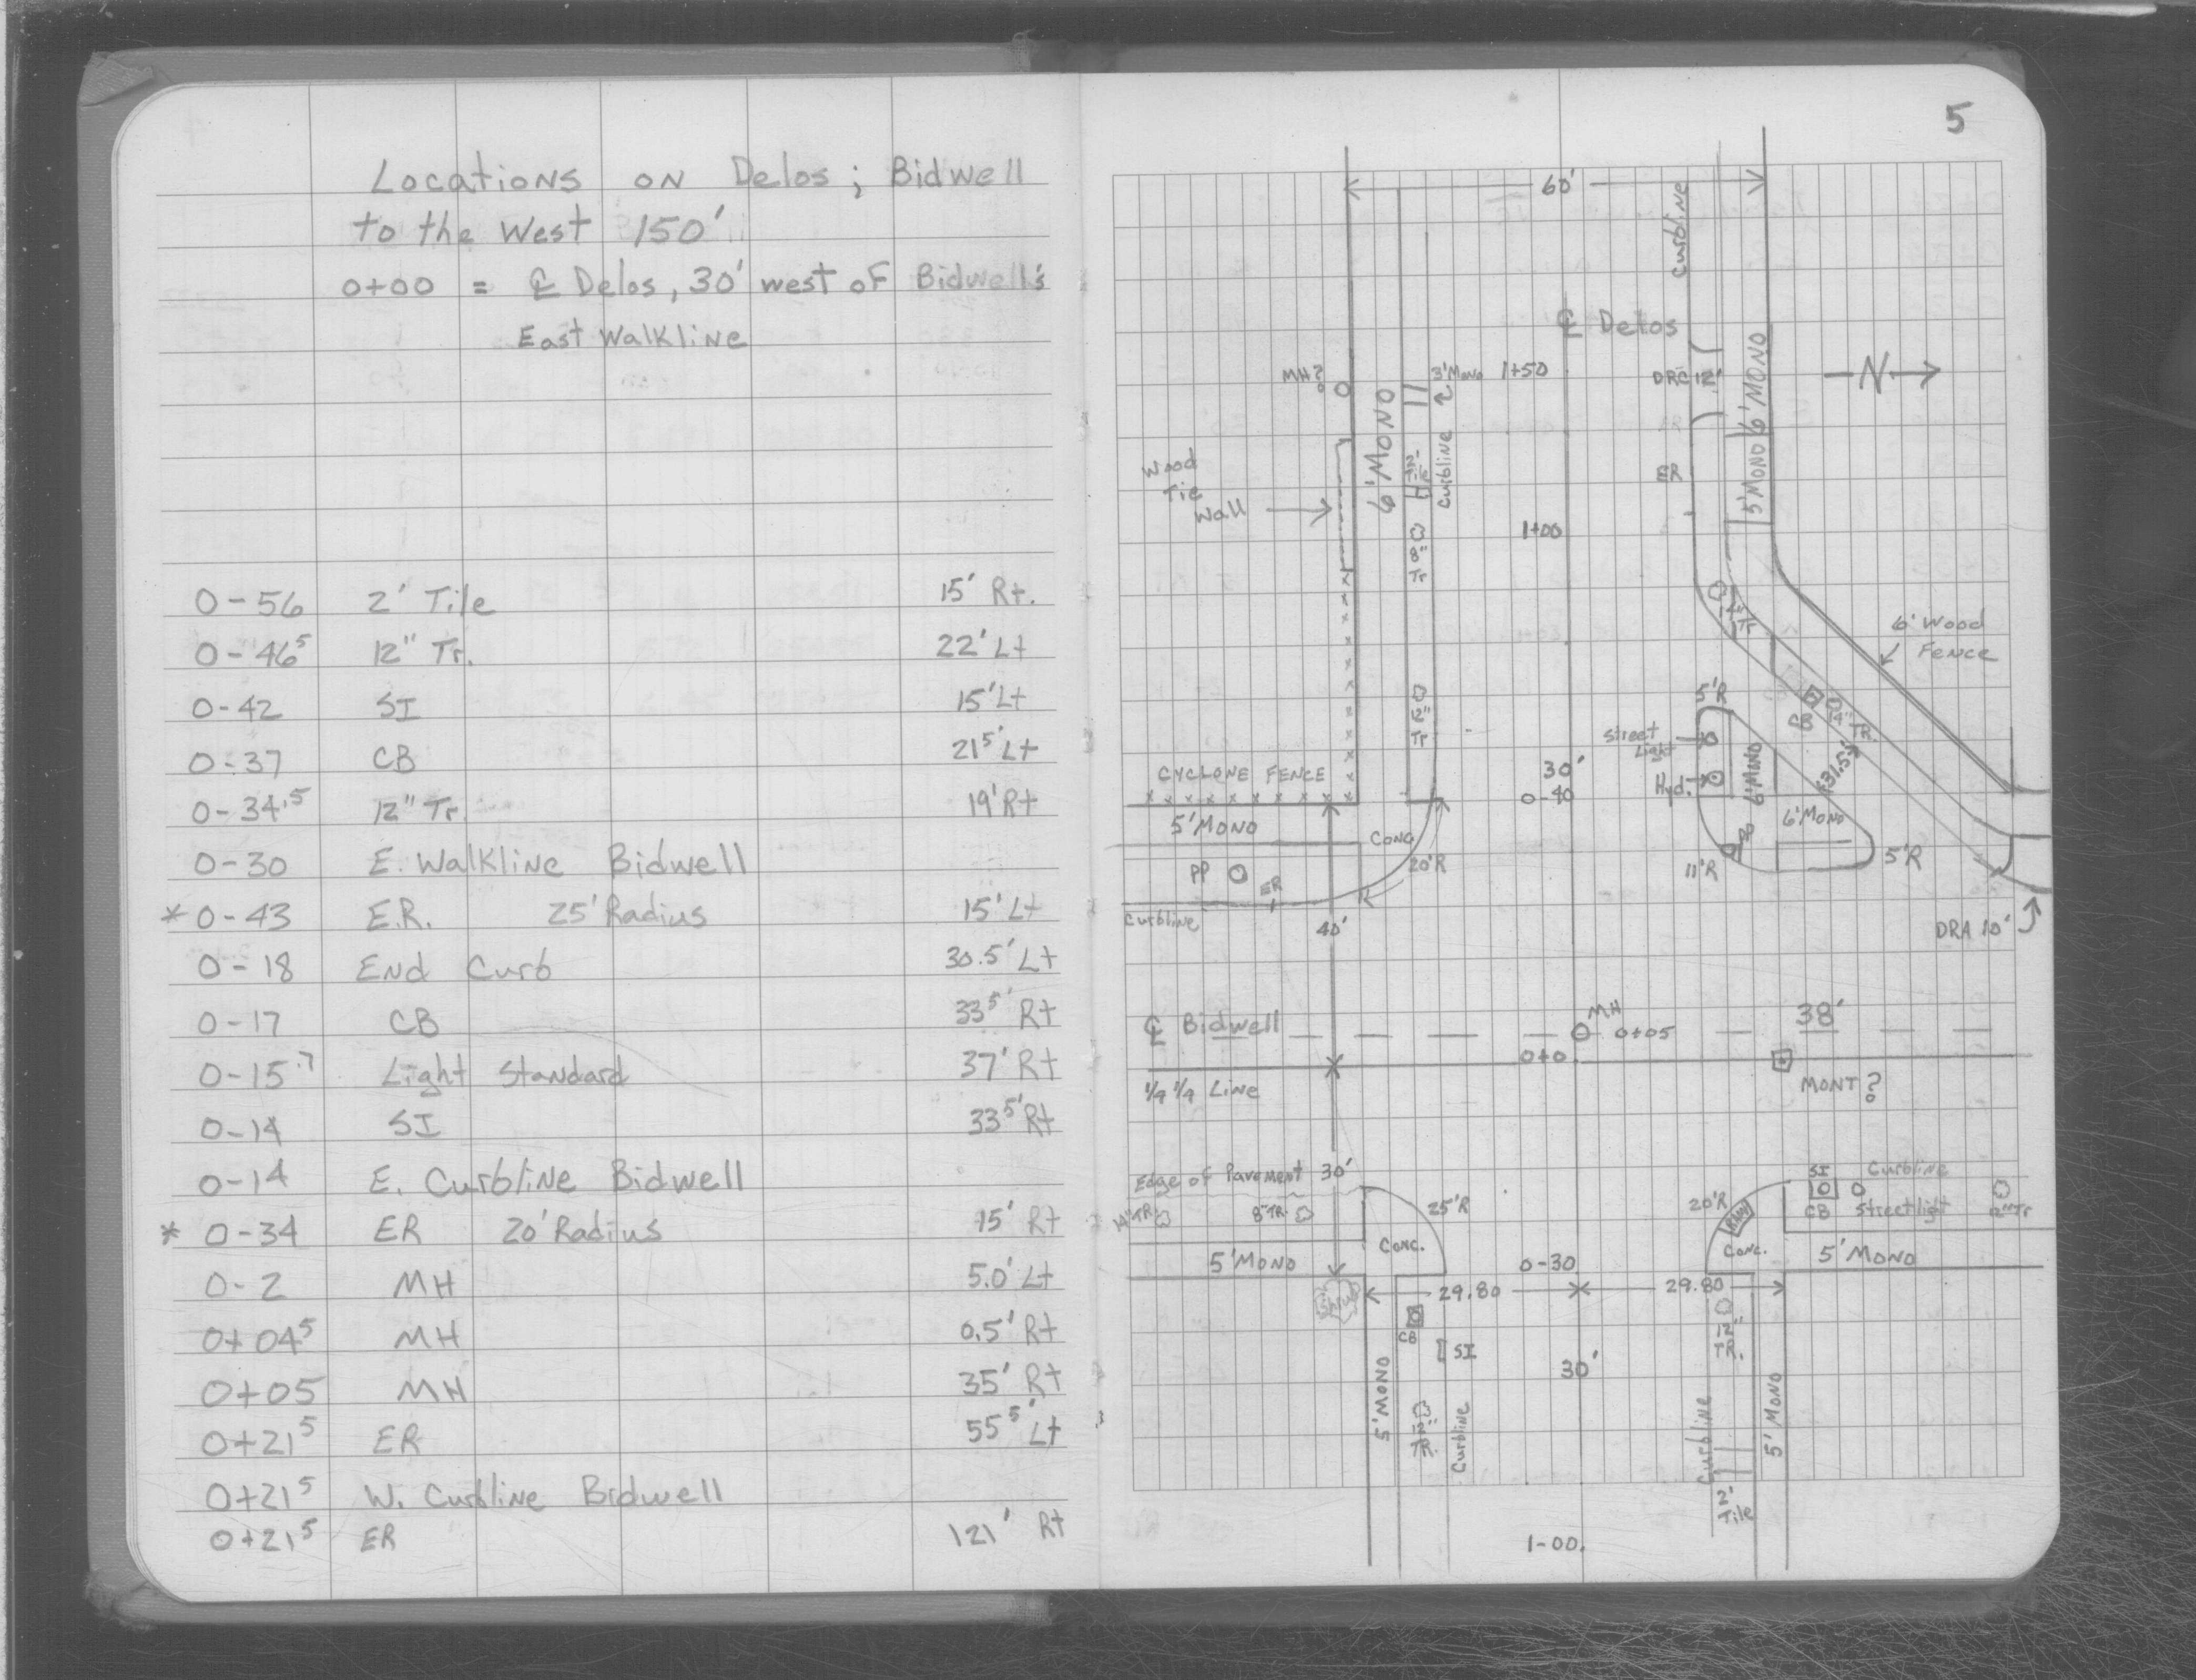 Locations on Delos; Bidwell
to the West 150'
0+00 = ℄ Delos, 30' west of Bidwell's
East Walkline
0-56 2' Tile 15' Rt.
0-46⁵ 12" Tr. 22' Lt
0-42 SI 15' Lt
0-37 CB 21⁵' Lt
0-34.⁵ 12" Tr. 19' Rt
0-30 E. Walkline Bidwell
* 0-43 E.R. 25' Radius 15' Lt
0-18 End Curb 30.5' Lt
0-17 CB 33⁵' Rt
0-15.⁷ Light Standard 37' Rt
0-14 SI 33⁵' Rt
0-14 E. Curbline Bidwell
* 0-34 ER 20' Radius 15' Rt
0-2 MH 5.0' Lt
0+04⁵ MH 0.5' Rt
0+05 MH 35' Rt
0+21⁵ ER 55⁵' Lt
0+21⁵ W. Curbline Bidwell
0+21⁵ ER 121' Rt
5
60'
Curbline
℄ Delos
MH?
6' MONO
3' Mono
1+50
DRC 12'
6' MONO
N
Wood
Tie
Wall
Curbline
ER
5' MONO
1+00
8"
Tr
6' Wood
Fence
5'R
12"
Tr
CB
14"
TR.
Street
Light
CYCLONE FENCE
30'
0-40
Hyd.
6' MONO
31.5'
5' MONO
CONC
6' MONO
PP
ER
20'R
11'R
5'R
Curbline
40'
DRA 10'
℄ Bidwell
MH
0+05
38'
0+0
1/4 1/4 Line
MONT?
Edge of Pavement 30'
14" TR
8" TR
25'R
20'R
SI
CB
Curbline
Streetlight
12" Tr
5' MONO
CONC.
0-30
CONC.
5' MONO
Shrub
29.80
29.80
CB
SI
30'
12"
TR.
5' MONO
12"
TR.
Curbline
Curbline
5' MONO
2'
Tile
1-00.